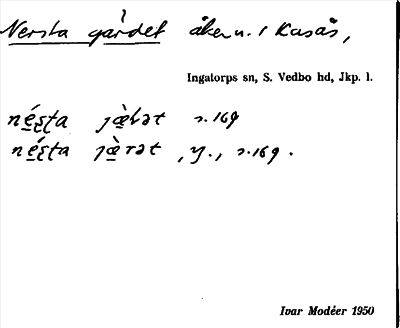 Nersta gärdet åker n. i Kasås,
Ingatorps sn, S. Vedbo hd, Jkp. l.
né̱ʂʈa jæ̱̀ɽət s. 169
né̱ʂʈa jæ̱̀rət, y., s. 169.
Ivar Modéer 1950